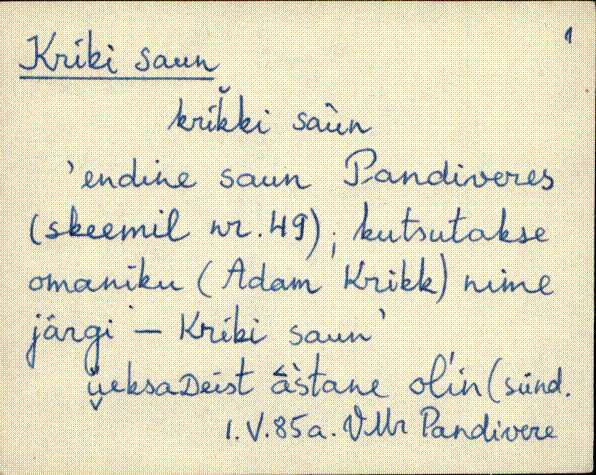 1
Kriki saun
krikki saùn
'endine saun Pandiveres
(skeemil nr. 49); kutsutakse
omaniku (Adam Krikk) nime
järgi – Kriki saun'
olin (sünd.
1. V. 85 a. VMr Pandivere